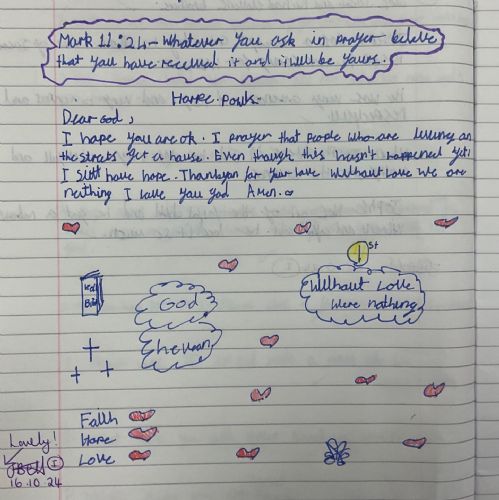 Mark 11:24 - Whatever you ask in prayer believe
that you have received it and it will be yours.
Dear God,
I hope you are ok. I prayer that people who are living on
the streets get a house. Even though this hasn't happened yet
I still have hope. Thankyou for your love Without Love we are
nothing I love you God Amen.
1st
Without Love
Were nothing
God
Faith
Hope
Love
Lovely!
16.10.24